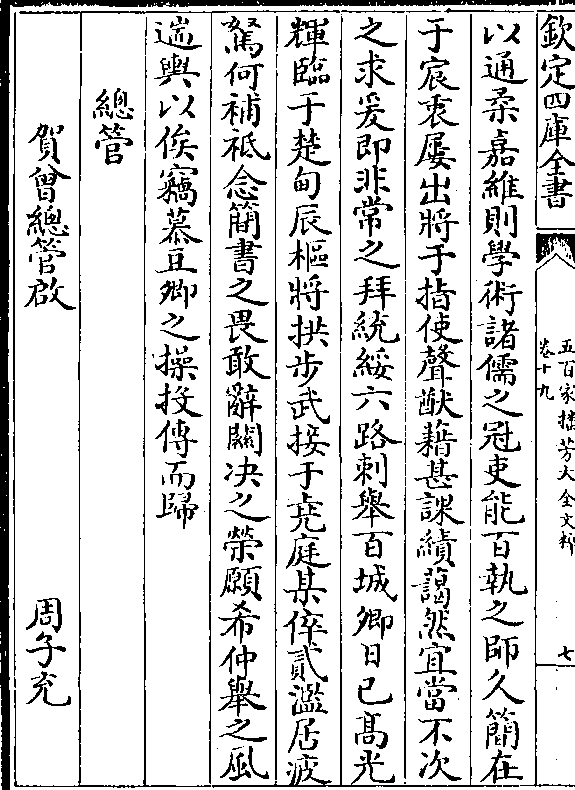 欽定四庫全書
五百家播芳大全文粹
卷十九
七
以通柔嘉維則學術諸儒之冠吏能百執之師久簡在
于宸衷屢出將于指使聲猷藉甚課績藹然宜當不次
之求爰即非常之拜統綏六路刺舉百城卿日已髙光
輝臨于楚甸辰樞將拱步武接于堯庭某倅貳濫居疲
駑何補祗念簡書之畏敢辭關决之榮願希仲舉之風
遄輿以俟竊慕豆卿之操投傳而歸
總管
賀曾總管啟
周子充